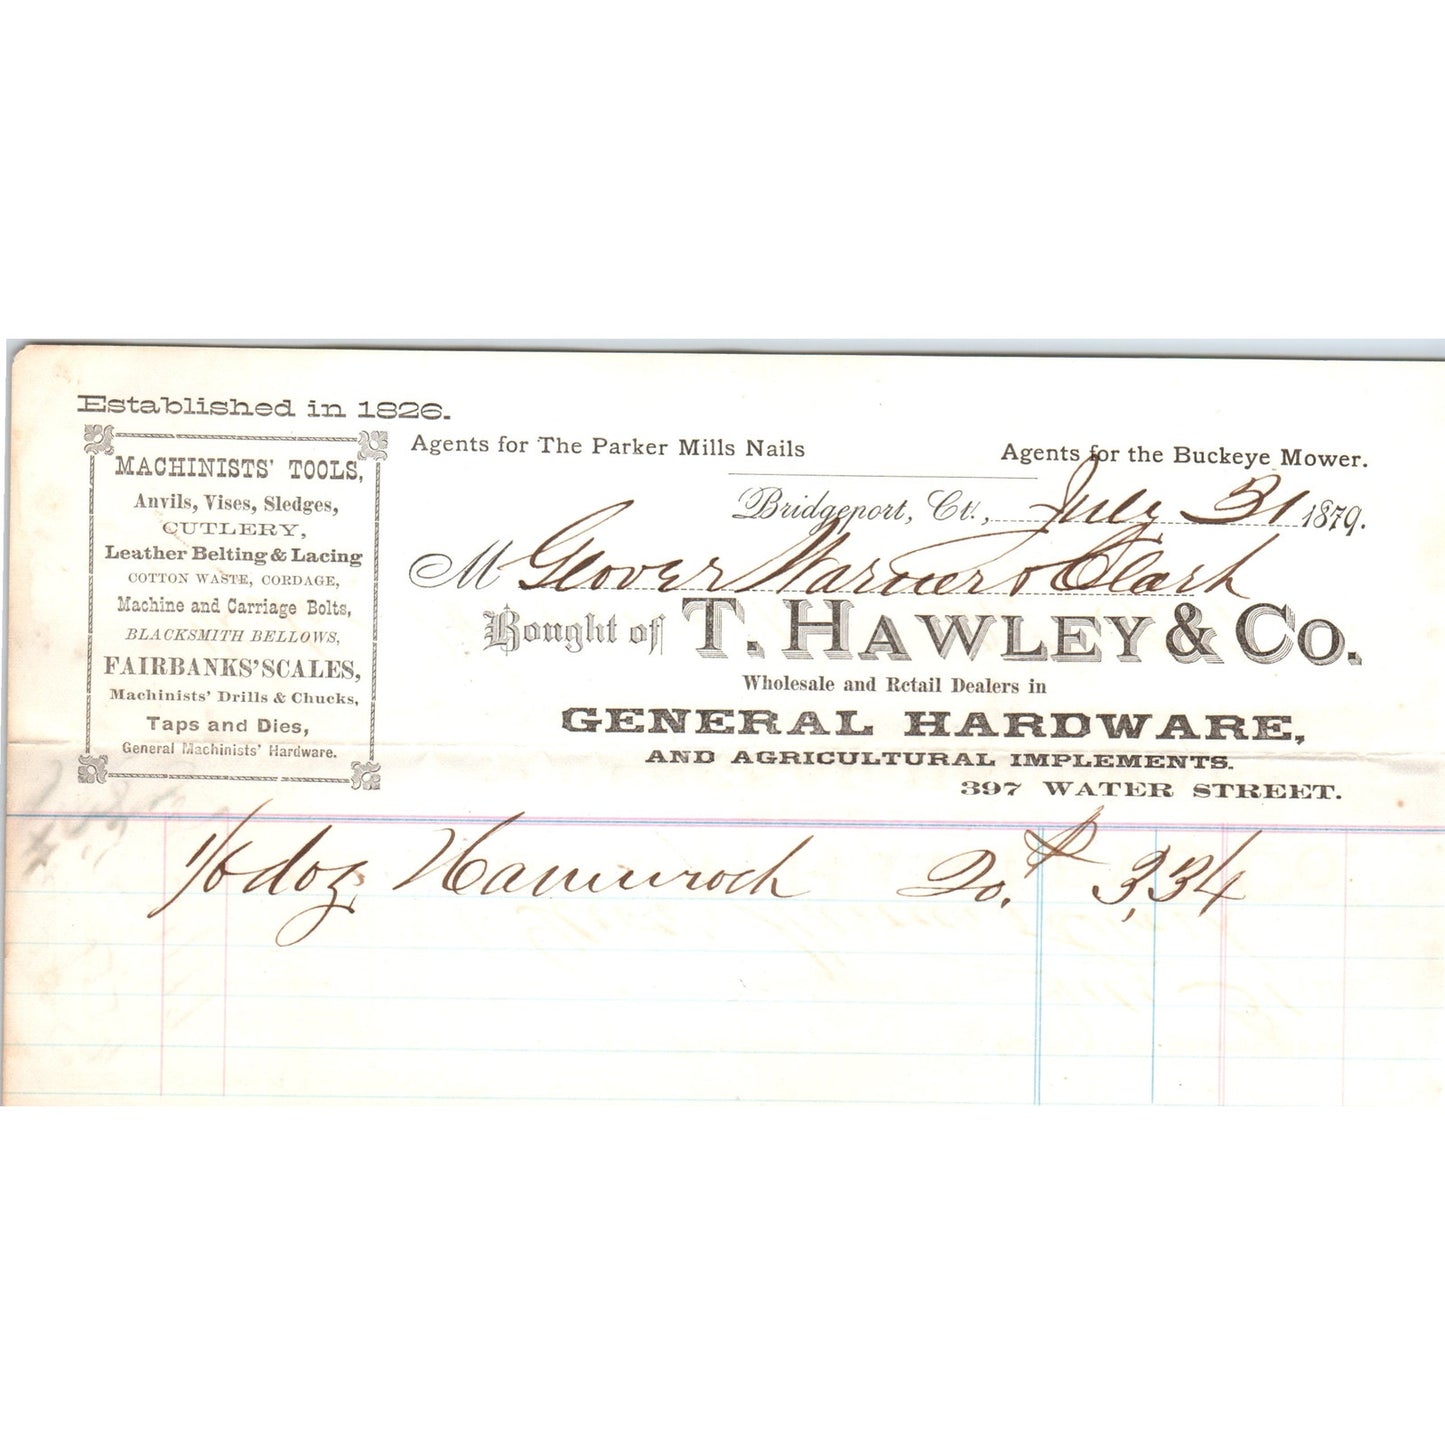 Established in 1826.
MACHINISTS' TOOLS,
Anvils, Vises, Sledges,
CUTLERY,
Leather Belting & Lacing
COTTON WASTE, CORDAGE,
Machine and Carriage Bolts,
BLACKSMITH BELLOWS,
FAIRBANKS' SCALES,
Machinists' Drills & Chucks,
Taps and Dies,
General Machinists' Hardware.
Agents for The Parker Mills Nails
Agents for the Buckeye Mower.
Bridgeport, Ct., July 31 1879.
M Glover Warner & Clark
Bought of T. HAWLEY & CO.
Wholesale and Retail Dealers in
GENERAL HARDWARE,
AND AGRICULTURAL IMPLEMENTS.
397 WATER STREET.
1/6 doz Hammock 20. $ 3,34